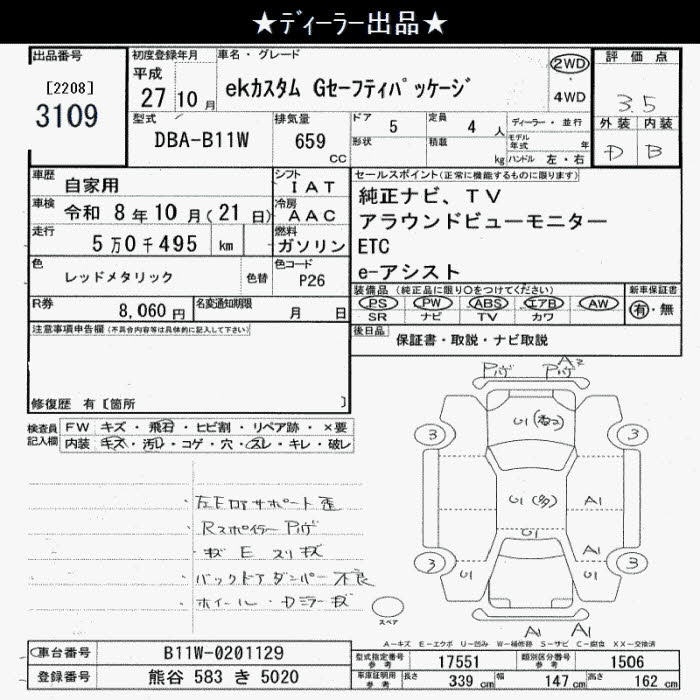 ★ディーラー出品★
出品番号
[2208]
3109
初度登録年月
平成
27 10 月
車名・グレード
ekカスタム Gセーフティパッケージ
2WD
・
4WD
評価点
3.5
外装 内装
D B
型式
DBA-B11W
排気量
659
CC
ドア
5
定員
4 人
形状
積載
kg
ディーラー・並行
モデル
年式 年
ハンドル 左・右
車歴
自家用
シフト
I A T
車検
令和 8 年 10 月(21 日)
冷房
A A C
走行
5 万 0 千 495 km
燃料
ガソリン
色
レッドメタリック
色替
色コード
P26
R券
8,060 円
名変通知期限
月 日
セールスポイント(正常に機能するものに限ります)
純正ナビ、TV
アラウンドビューモニター
ETC
e-アシスト
装備品(純正品に限り○をつけてください)
PS PW ABS エアB AW
SR ナビ TV カワ
新車保証書
有・無
後日品
保証書・取説・ナビ取説
注意事項申告欄(不具合内容等は具体的に記入して下さい)
修復歴 有〔箇所 〕
検査員
記入欄
FW キズ・飛石・ヒビ割・リペア跡・×要
内装 キズ・汚れ・コゲ・穴・スレ・キレ・破レ
Rスポイラー Pハゲ
バックドアダンパー不良
Pハゲ
Pハゲ
A2
3
3
U1
U1(多)
A1
U1
A1
3
3
U1
U1
A1
A1
スペア
A-キズ E-エクボ U-凹み W-補修跡 S-サビ C-腐食 XX-交換済
車台番号
B11W-0201129
登録番号
熊谷 583 き 5020
型式指定番号
参考
17551
類別区分番号
参考
1506
車庫証明用
参考
長さ
339 cm
幅
147 cm
高さ
162 cm